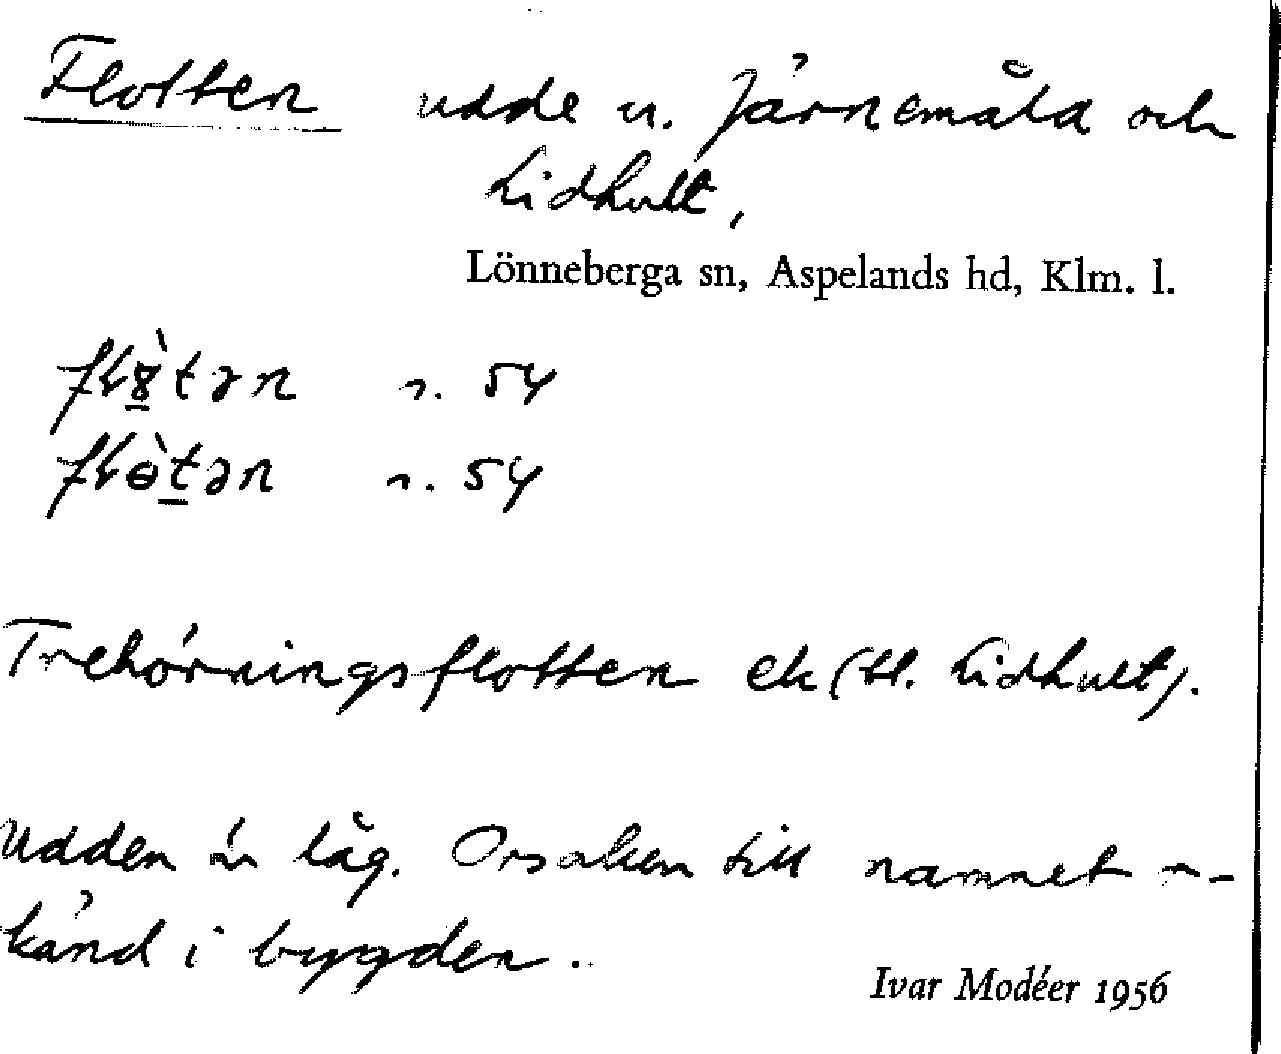 Flotten udde u. Järnemåla och
Lidhult,
Lönneberga sn, Aspelands hd, Klm. l.
n. 54
n. 54
Trehörningsflotten ek (bl. Lidhult).
Udden är låg. Orsaken till namnet o-
känd i bygden.
Ivar Modéer 1956